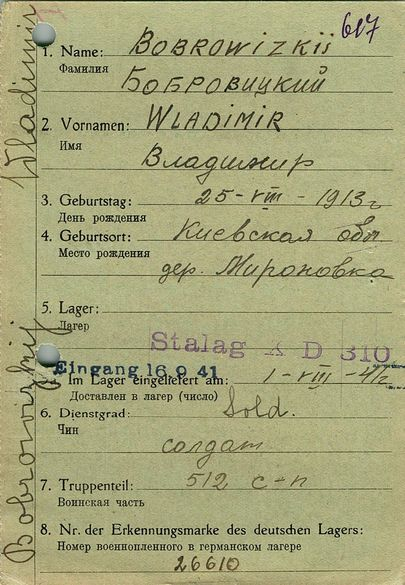 617
1. Name: BOBROWIZKII
Фамилия
БОБРОВИЦКИЙ
2. Vornamen: WLADIMIR
Имя
Владимир
3. Geburtstag: 25-VIII-1913 г
День рождения
4. Geburtsort: Киевская обл.
Место рождения
дер. Мироновка
5. Lager:
Лагер
Stalag X D 310
Eingang 16.9.41
Im Lager eingeliefert am: 1-VIII-41 г
Доставлен в лагер (число)
6. Dienstgrad: Sold.
Чин
солдат
7. Truppenteil: 512 с-п
Воинская часть
8. Nr. der Erkennungsmarke des deutschen Lagers:
Номер военнопленного в германском лагере
26610
Bobrowizkij Wladimir